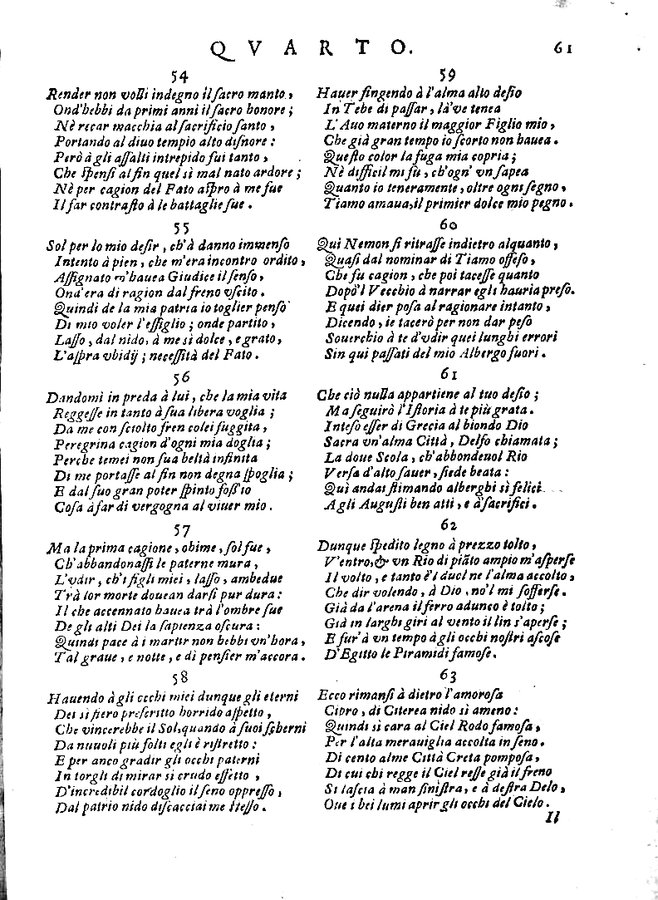 QVARTO. 61
54
Render non volli indegno il sacro manto,
Ond'hebbi da primi anni il sacro honore;
Nè recar macchia al sacrificio santo,
Portando al diuo tempio alto disnore:
Però à gli assalti intrepido fui tanto,
Che spensi al fin quel sì mal nato ardore;
Nè per cagion del Fato aspro à me fue
Il far contrasto à le battaglie sue.
55
Sol per lo mio desir, ch'à danno immenso
Intento à pien, che m'era incontro ordito,
Assignato m'hauea Giudice il senso,
Ond'era di ragion dal freno vscito.
Quindi de la mia patria io toglier penso
Di mio voler l'essiglio; onde partito,
Lasso, dal nido, à me sì dolce, e grato,
L'aspra vbidij necessità del Fato.
56
Dandomi in preda à lui, che la mia vita
Reggesse in tanto à sua libera voglia;
Da me con sciolto fren colei fuggita,
Peregrina cagion d'ogni mia doglia;
Perche temei non sua beltà infinita
Di me portasse al fin non degna spoglia;
E dal suo gran poter spinto foss'io
Cosa à far di vergogna al viuer mio.
57
Ma la prima cagione, obime, sol fue,
Ch'abbandonassi le paterne mura,
L'vdir, ch'i figli miei, lasso, ambedue
Trà lor morte douean darsi pur dura:
Il che accennato hauea trà l'ombre sue
De gli alti Dei la sapienza oscura:
Quindi pace à i martir non hebbi vn'hora,
Tal graue, e notte, e dì pensier m'accora.
58
Hauendo à gli occhi miei dunque gli eterni
Dei sì fiero prescritto horrido aspetto,
Che vincerebbe il Sol, quando à suoi scherni
Da nuuoli più folti egli è ristretto:
E per anco gradir gli occhi paterni
In torgli di mirar sì crudo effetto,
D'incredibil cordoglio il seno oppresso,
Dal patrio nido discacciai me stesso.
59
Hauer fingendo à l'alma alto desio
In Tebe di passar, là've tenea
L'Auo materno il maggior Figlio mio,
Che già gran tempo io scorto non hauea.
Questo color la fuga mia copria;
Nè difficil mi fù, ch'ogn'vn sapea
Quanto io teneramente, oltre ogni segno,
Tiamo amaua, il primier dolce mio pegno.
60
Qui Nemonsi ritrasse indietro alquanto,
Quasi dal nominar di Tiamo offeso,
Che fu cagion, che poi tacesse quanto
Dopò'l Vecchio à narrar egli hauria preso.
E quei dier posa al ragionare intanto,
Dicendo, ie tacerò per non dar peso
Souerchio à te d'vdir quei lunghi errori
Sin qui passati del mio Albergo fuori.
61
Che ciò nulla appartiene al tuo desio;
Ma seguirò l'Istoria à te più grata.
Inteso esser di Grecia al biondo Dio
Sacra vn'alma Città, Delfo chiamata;
La doue Scola, ch'abbondeuol Rio
Versa d'alto sauer, siede beata:
Quì andai stimando alberghi sì felici
A gli Augusti ben atti, e à sacrifici.
62
Dunque spedito legno à prezzo tolto,
V'entro, & vn Rio di pianto ampio m'asperse
Il volto, e tanto è'l duol ne l'alma accolto,
Che dir volendo, à Dio, no'l mi sofferse.
Già da l'arena il ferro adunco è tolto;
Già in larghi giri al vento il lin s'aperse;
E fur'à vn tempo à gli occhi nostri ascose
D'Egitto le Piramidi famose.
63
Ecco rimansi à dietro l'amorosa
Cipro, di Citerea nido sì ameno:
Quindi sì cara al Ciel Rodo famosa,
Per l'alta merauiglia accolta in seno.
Di cento alme Città Creta pomposa,
Di cui chi regge il Ciel resse già il freno
Si lascia à man sinistra, e à destra Delo,
Oue i bei lumi aprir gli occhi del Cielo.
Il